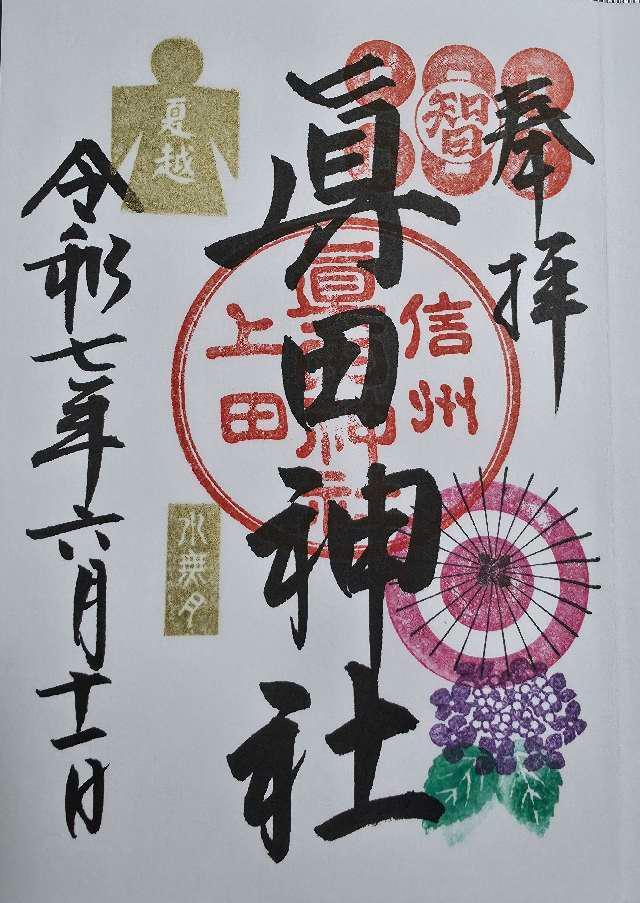 奉拝
智
信州
眞田神社
上田
眞田神社
夏越
水無月
令和七年六月十一日